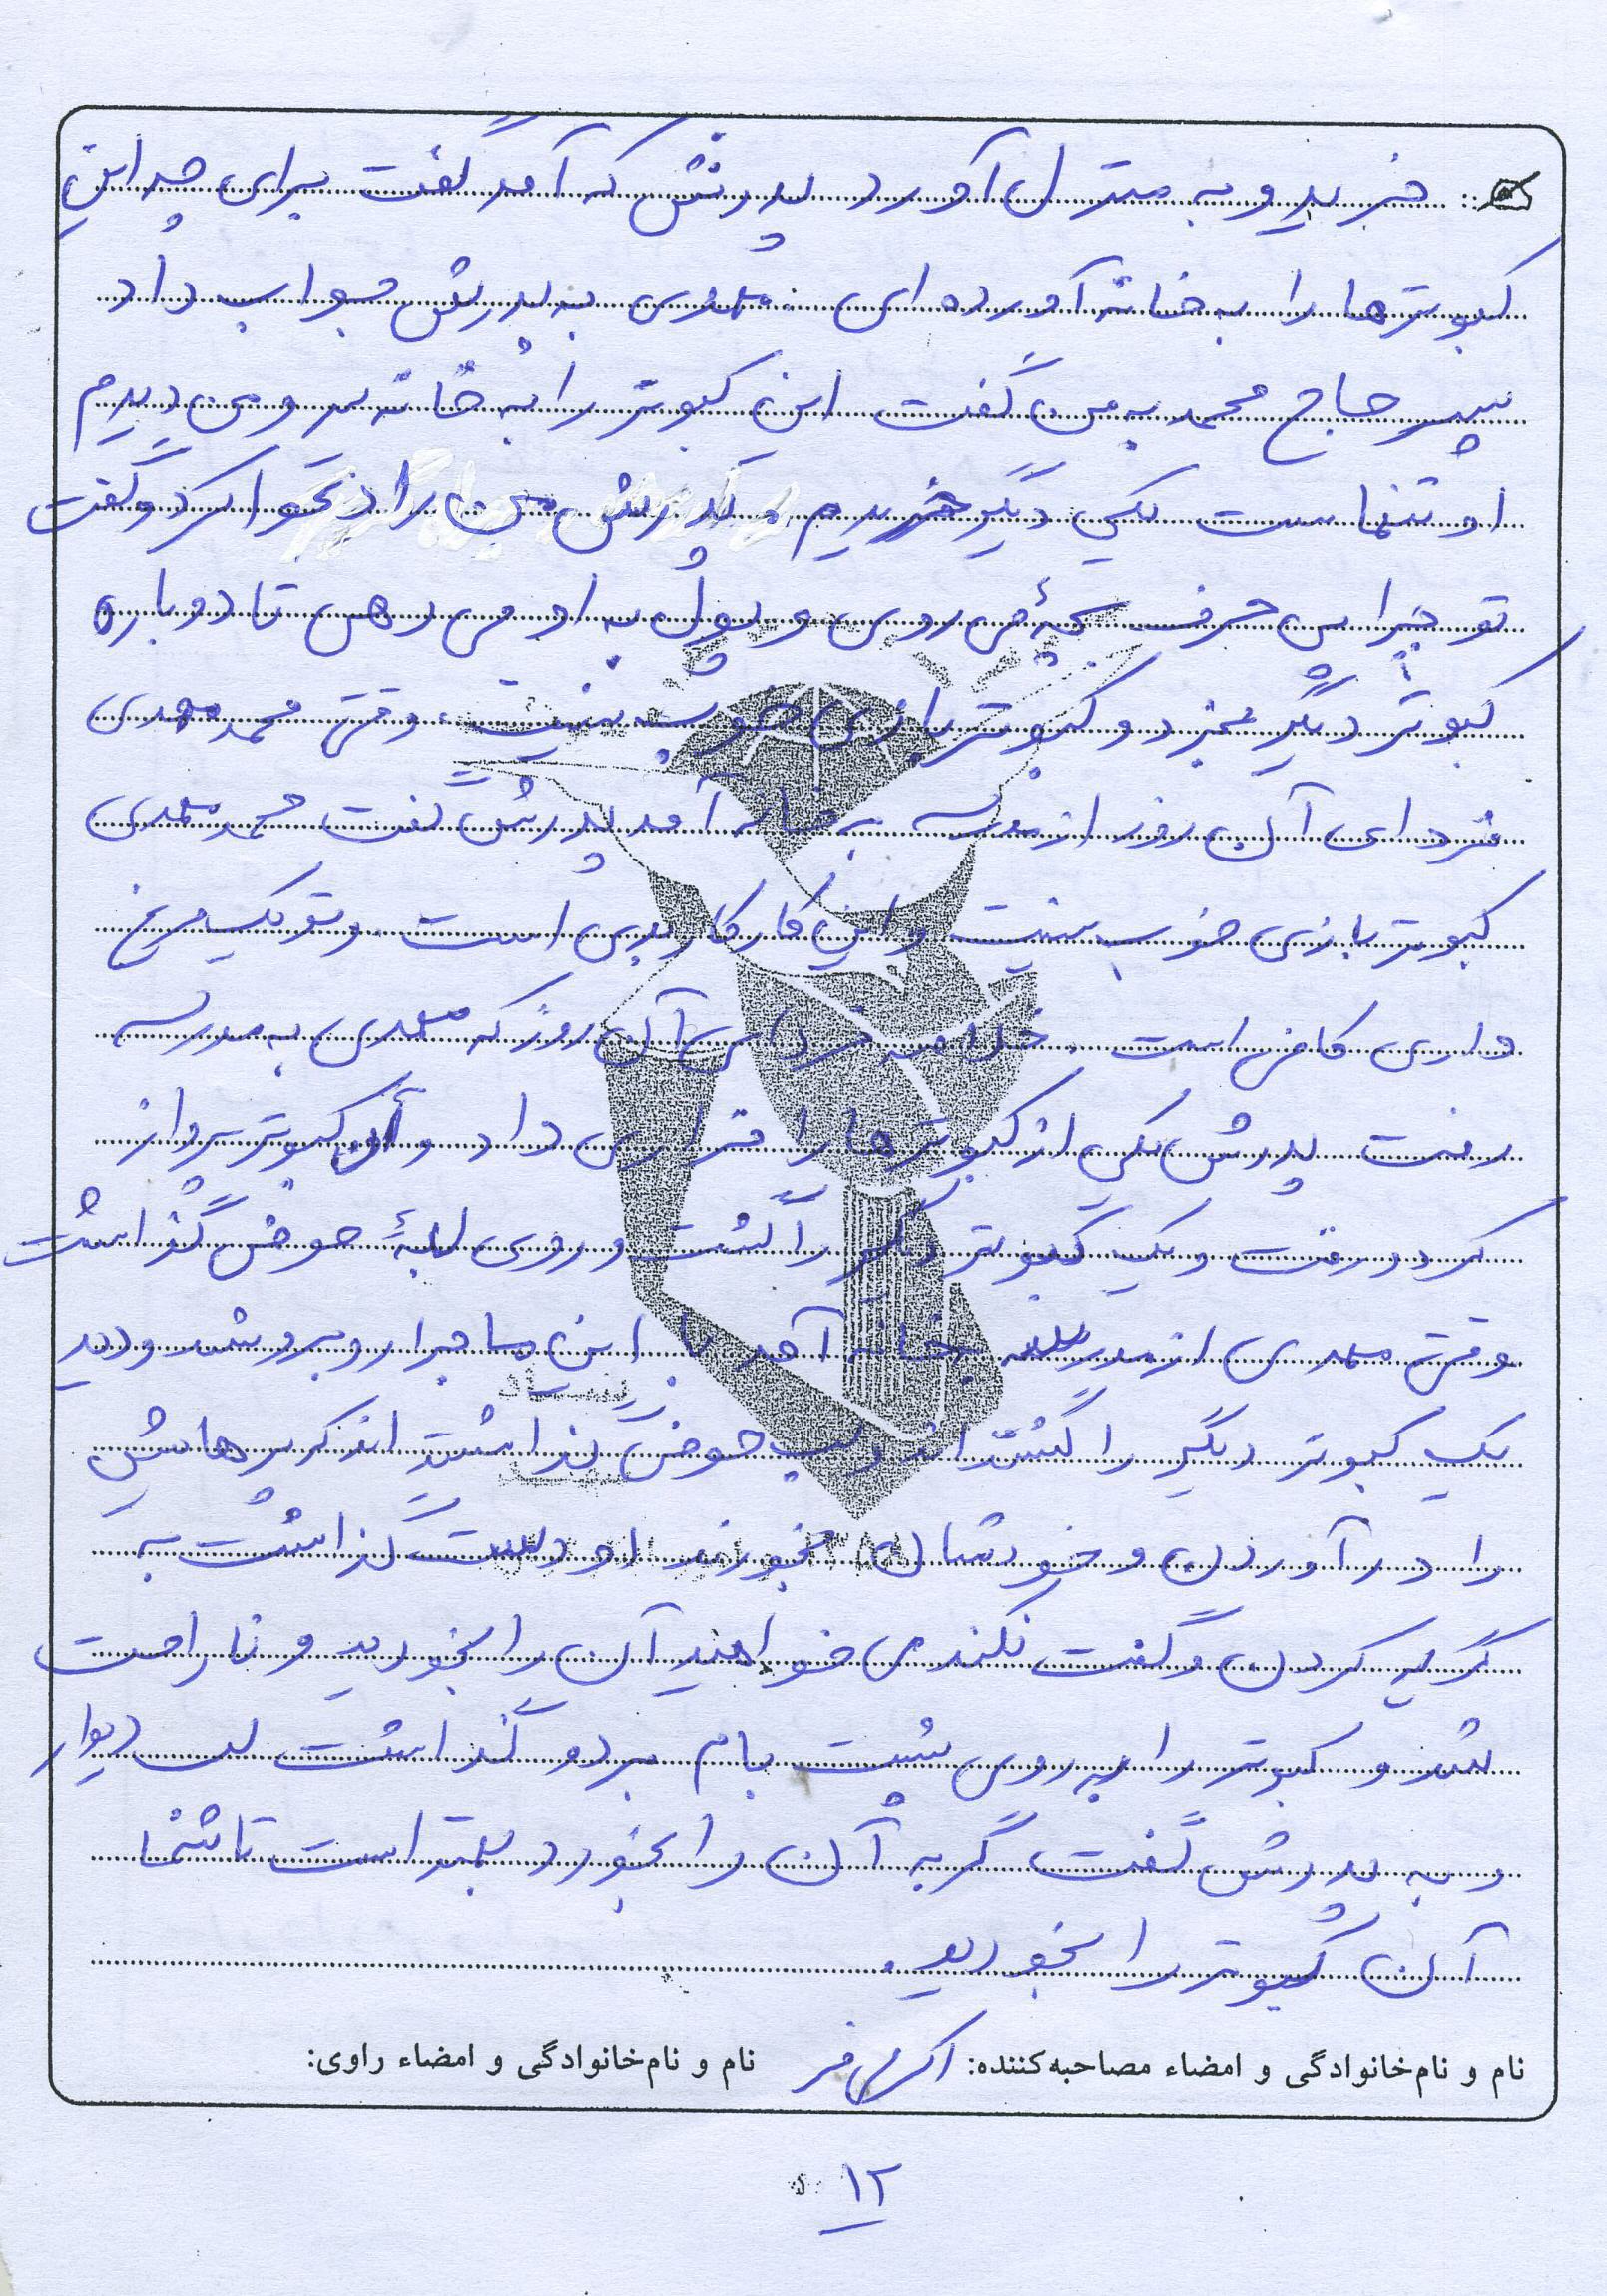 خرید و به منزل آورد پدرش که آمد گفت برای چه این
کبوترها را به خانه آورده ای . مهدی به پدرش جواب داد
پسر حاج محمد به من گفت این کبوتر را به خانه ببر و من دیدم
او تنهاست یکی دیگر خریدم . پدرش من را دعوا کرد و گفت
تو چرا این حرف بچه می روی و پول به او می دهی تا دوباره
کبوتر دیگر بخرد و کبوتر بازی خوب نیست . وقتی محمد مهدی
فردای آن روز از مدرسه به خانه آمد پدرش گفت محمد مهدی
کبوتر بازی خوب نیست و این کار کار بدی است . و تو یک مرغ
داری کافی است . خلاصه فردای آن روز که مهدی به مدرسه
رفت پدرش یکی از کبوترها را فراری داد و آن کبوتر پرواز
کرد و رفت و یک کبوتر دیگر را کشت و روی لبۀ حوض گذاشت
وقتی مهدی از مدرسه به خانه آمد با این ماجرا روبرو شد و دید
یک کبوتر دیگر را کشته اند و لب حوض گذاشته اند که پرهایش
را در آورند و خودشان بخورند او دست گذاشت به
گریه کردن و گفت نکند می خواهید آن را بخورید و ناراحت
شد و کبوتر را به روی پشت بام برد و گذاشت لب دیوار
و به پدرش گفت گربه آن را بخورد بهتر است تا شما
آن کبوتر را بخورید .
نام و نام‌خانوادگی و امضاء مصاحبه‌کننده: نام و نام‌خانوادگی و امضاء راوی:
۱۲